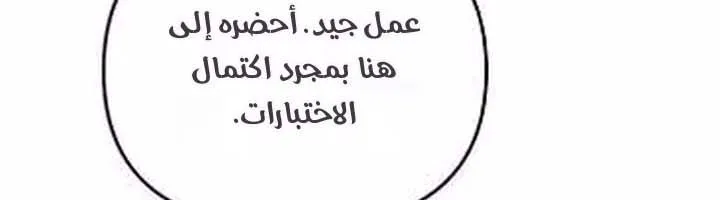 عمل جيد. أحضره إلى
هنا بمجرد اكتمال
الاختبارات.